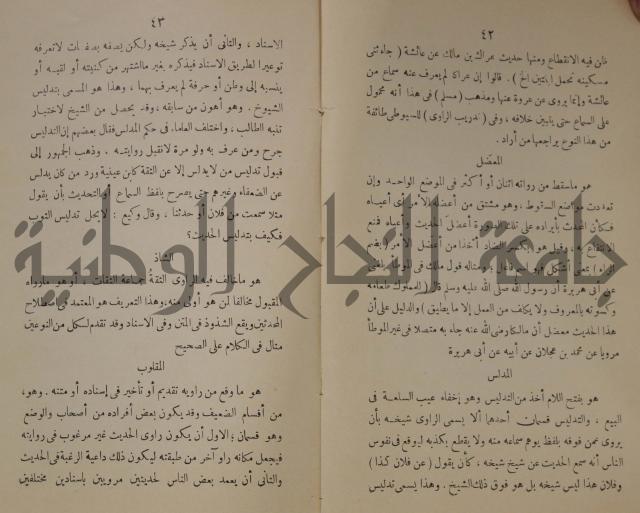 ٤٢
فإن فيه الانقطاع ومنها حديث عراك بن مالك عن عائشة ( جاءتنى
مسكينة تحمل ابنتين الخ ) . قالوا إن عراكا لم يعرف عنه سماع من
عائشة وإنما يروى عن عروة عنها ومذهب ( مسلم ) فى هذا أنه محمول
على السماع حتى يتبين خلافه ، وفى ( تدريب الراوى ) للسيوطى طائفة
من هذا النوع يراجعها من أراد .
المعضل
هو ماسقط من رواته اثنان أو أكثر فى الموضع الواحد وإن
تعددت مواضع السقوط ، وهو مشتق من أعضله الأمر أى أعياه
فكأن المحدث بأيراده على تلك الصورة أعضل الحديث وأعياه فمنع
الانتفاع به . وقيل هو بكسر الضاد أخذا من أعضل الأمر
بمعنى أشكل فهو اسم فاعل : ومثاله قول مالك فى الموطأ بلغنى
عن أبى هريرة أن رسول الله صلى الله عليه وسلم قال ( للمملوك طعامه
وكسوته بالمعروف ولا يكلف من العمل إلا ما يطيق ) والدليل على أن
هذا الحديث معضل أن مالكا رضى الله عنه جاء به متصلا فى غير الموطأ
مرويا عن محمد بن عجلان عن أبيه عن أبى هريرة
المدلس
هو بفتح اللام أخذ من التدليس وهو إخفاء عيب السلعة فى
البيع ، والتدليس قسمان أحدهما ألا يسمى الراوى شيخه بأن
يروى عمن فوقه بلفظ يوهم سماعه منه ولا يقطع بكذبه ليوقع فى نفوس
الناس أنه سمع الحديث عن شيخ شيخه ، كأن يقول ( عن فلان كذا )
وفلان هذا ليس شيخه بل هو فوق ذلك الشيخ . وهذا يسمى تدليس
٤٣
الاسناد ، والثانى أن يذكر شيخه ولكن يصفه بصفات لا تعرفه
توعيرا لطريق الاسناد فيذكره بغير ما اشتهر من كنيته أو لقبه أو
ينسبه إلى وطن أو حرفة لم يعرف بهما ، وهذا هو المسمى بتدليس
الشيوخ . وهو أهون من سابقه ، وقد يحصل من الشيخ لاختبار
تنبه الطالب ، واختلف العلماء فى حكم المدلس فقال بعضهم إن التدليس
جرح ومن عرف به ولو مرة لا تقبل روايته . وذهب الجمهور إلى
قبول تدليس من لا يدلس إلا عن الثقة كابن عيينة ورد من كان يدلس
عن الضعفاء وغيرهم حتى يصرح بلفظ السماع أو التحديث بأن يقول
مثلا سمعت من فلان أو حدثنا ، وقال وكيع : لا يحل تدليس الثوب
فكيف بتدليس الحديث؟
الشاذ
هو ما خالف فيه الراوى الثقة جماعة الثقات . أو هو مارواه
المقبول مخالفا لمن هو أولى منه، وهذا التعريف هو المعتمد فى اصطلاح
المحدثين ويقع الشذوذ فى المتن وفى الاسناد وقد تقدم لكل من النوعين
مثال فى الكلام على الصحيح
المقلوب
هو ما وقع من راويه تقديم أو تأخير فى إسناده أو متنه . وهو،
من أقسام الضعيف وقد يكون بعض أفراده من أصحاب والوضع
وهو قسمان ؛ الاول أن يكون راوى الحديث غير مرغوب فى روايته
فيجعل مكانه راو آخر من طبقته ليكون ذلك داعية الرغبة فى الحديث
والثانى أن يعمد بعض الناس لحديثين مرويين باسنادين مختلفين
جامعة النجاح الوطنية